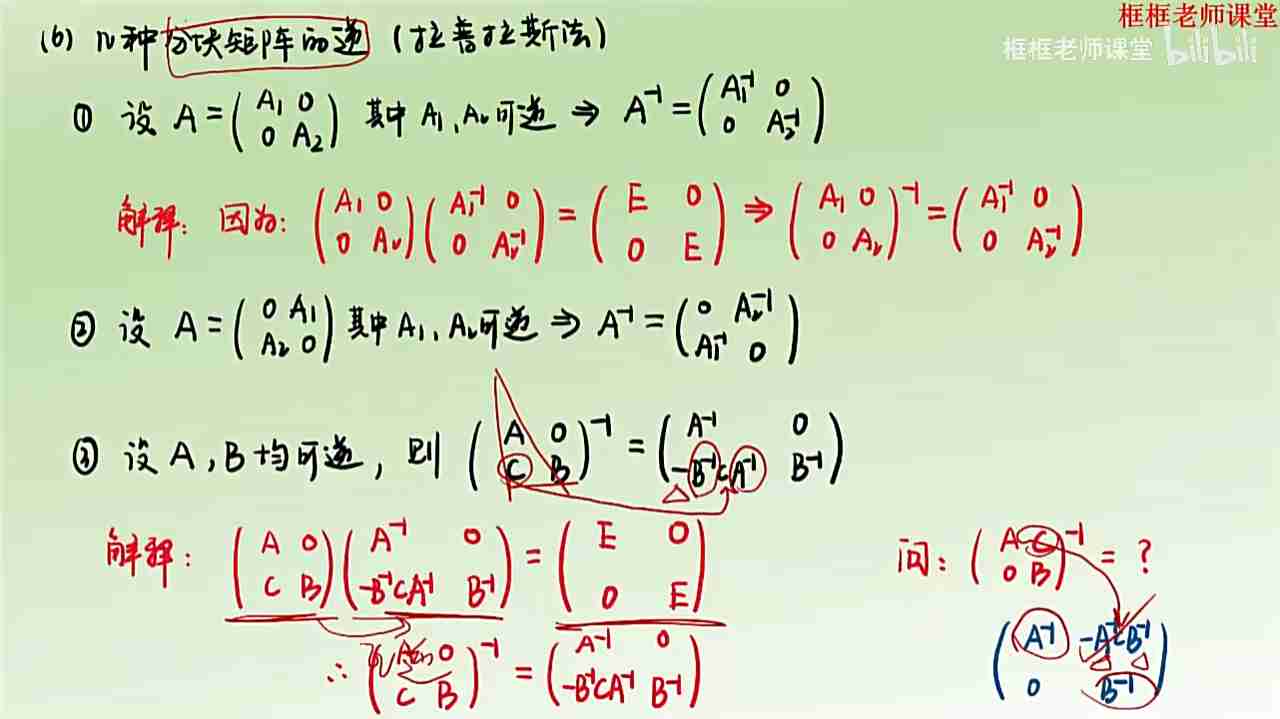 框框老师课堂
框框老师课堂 bilibili
(6) 几种分块矩阵的逆 (拉普拉斯法)
① 设 A = \begin{pmatrix} A_1 & 0 \\ 0 & A_2 \end{pmatrix} 其中 A_1, A_2 可逆 ⇒ A^{-1} = \begin{pmatrix} A_1^{-1} & 0 \\ 0 & A_2^{-1} \end{pmatrix}
解释: 因为: \begin{pmatrix} A_1 & 0 \\ 0 & A_2 \end{pmatrix} \begin{pmatrix} A_1^{-1} & 0 \\ 0 & A_2^{-1} \end{pmatrix} = \begin{pmatrix} E & 0 \\ 0 & E \end{pmatrix} ⇒ \begin{pmatrix} A_1 & 0 \\ 0 & A_2 \end{pmatrix}^{-1} = \begin{pmatrix} A_1^{-1} & 0 \\ 0 & A_2^{-1} \end{pmatrix}
② 设 A = \begin{pmatrix} 0 & A_1 \\ A_2 & 0 \end{pmatrix} 其中 A_1, A_2 可逆 ⇒ A^{-1} = \begin{pmatrix} 0 & A_2^{-1} \\ A_1^{-1} & 0 \end{pmatrix}
③ 设 A, B 均可逆, 则 \begin{pmatrix} A & 0 \\ C & B \end{pmatrix}^{-1} = \begin{pmatrix} A^{-1} & 0 \\ -B^{-1}CA^{-1} & B^{-1} \end{pmatrix}
解释: \begin{pmatrix} A & 0 \\ C & B \end{pmatrix} \begin{pmatrix} A^{-1} & 0 \\ -B^{-1}CA^{-1} & B^{-1} \end{pmatrix} = \begin{pmatrix} E & 0 \\ 0 & E \end{pmatrix}
∴ \begin{pmatrix} A & 0 \\ C & B \end{pmatrix}^{-1} = \begin{pmatrix} A^{-1} & 0 \\ -B^{-1}CA^{-1} & B^{-1} \end{pmatrix}
问: \begin{pmatrix} A & C \\ 0 & B \end{pmatrix}^{-1} = ?
\begin{pmatrix} A^{-1} & -A^{-1}CB^{-1} \\ 0 & B^{-1} \end{pmatrix}